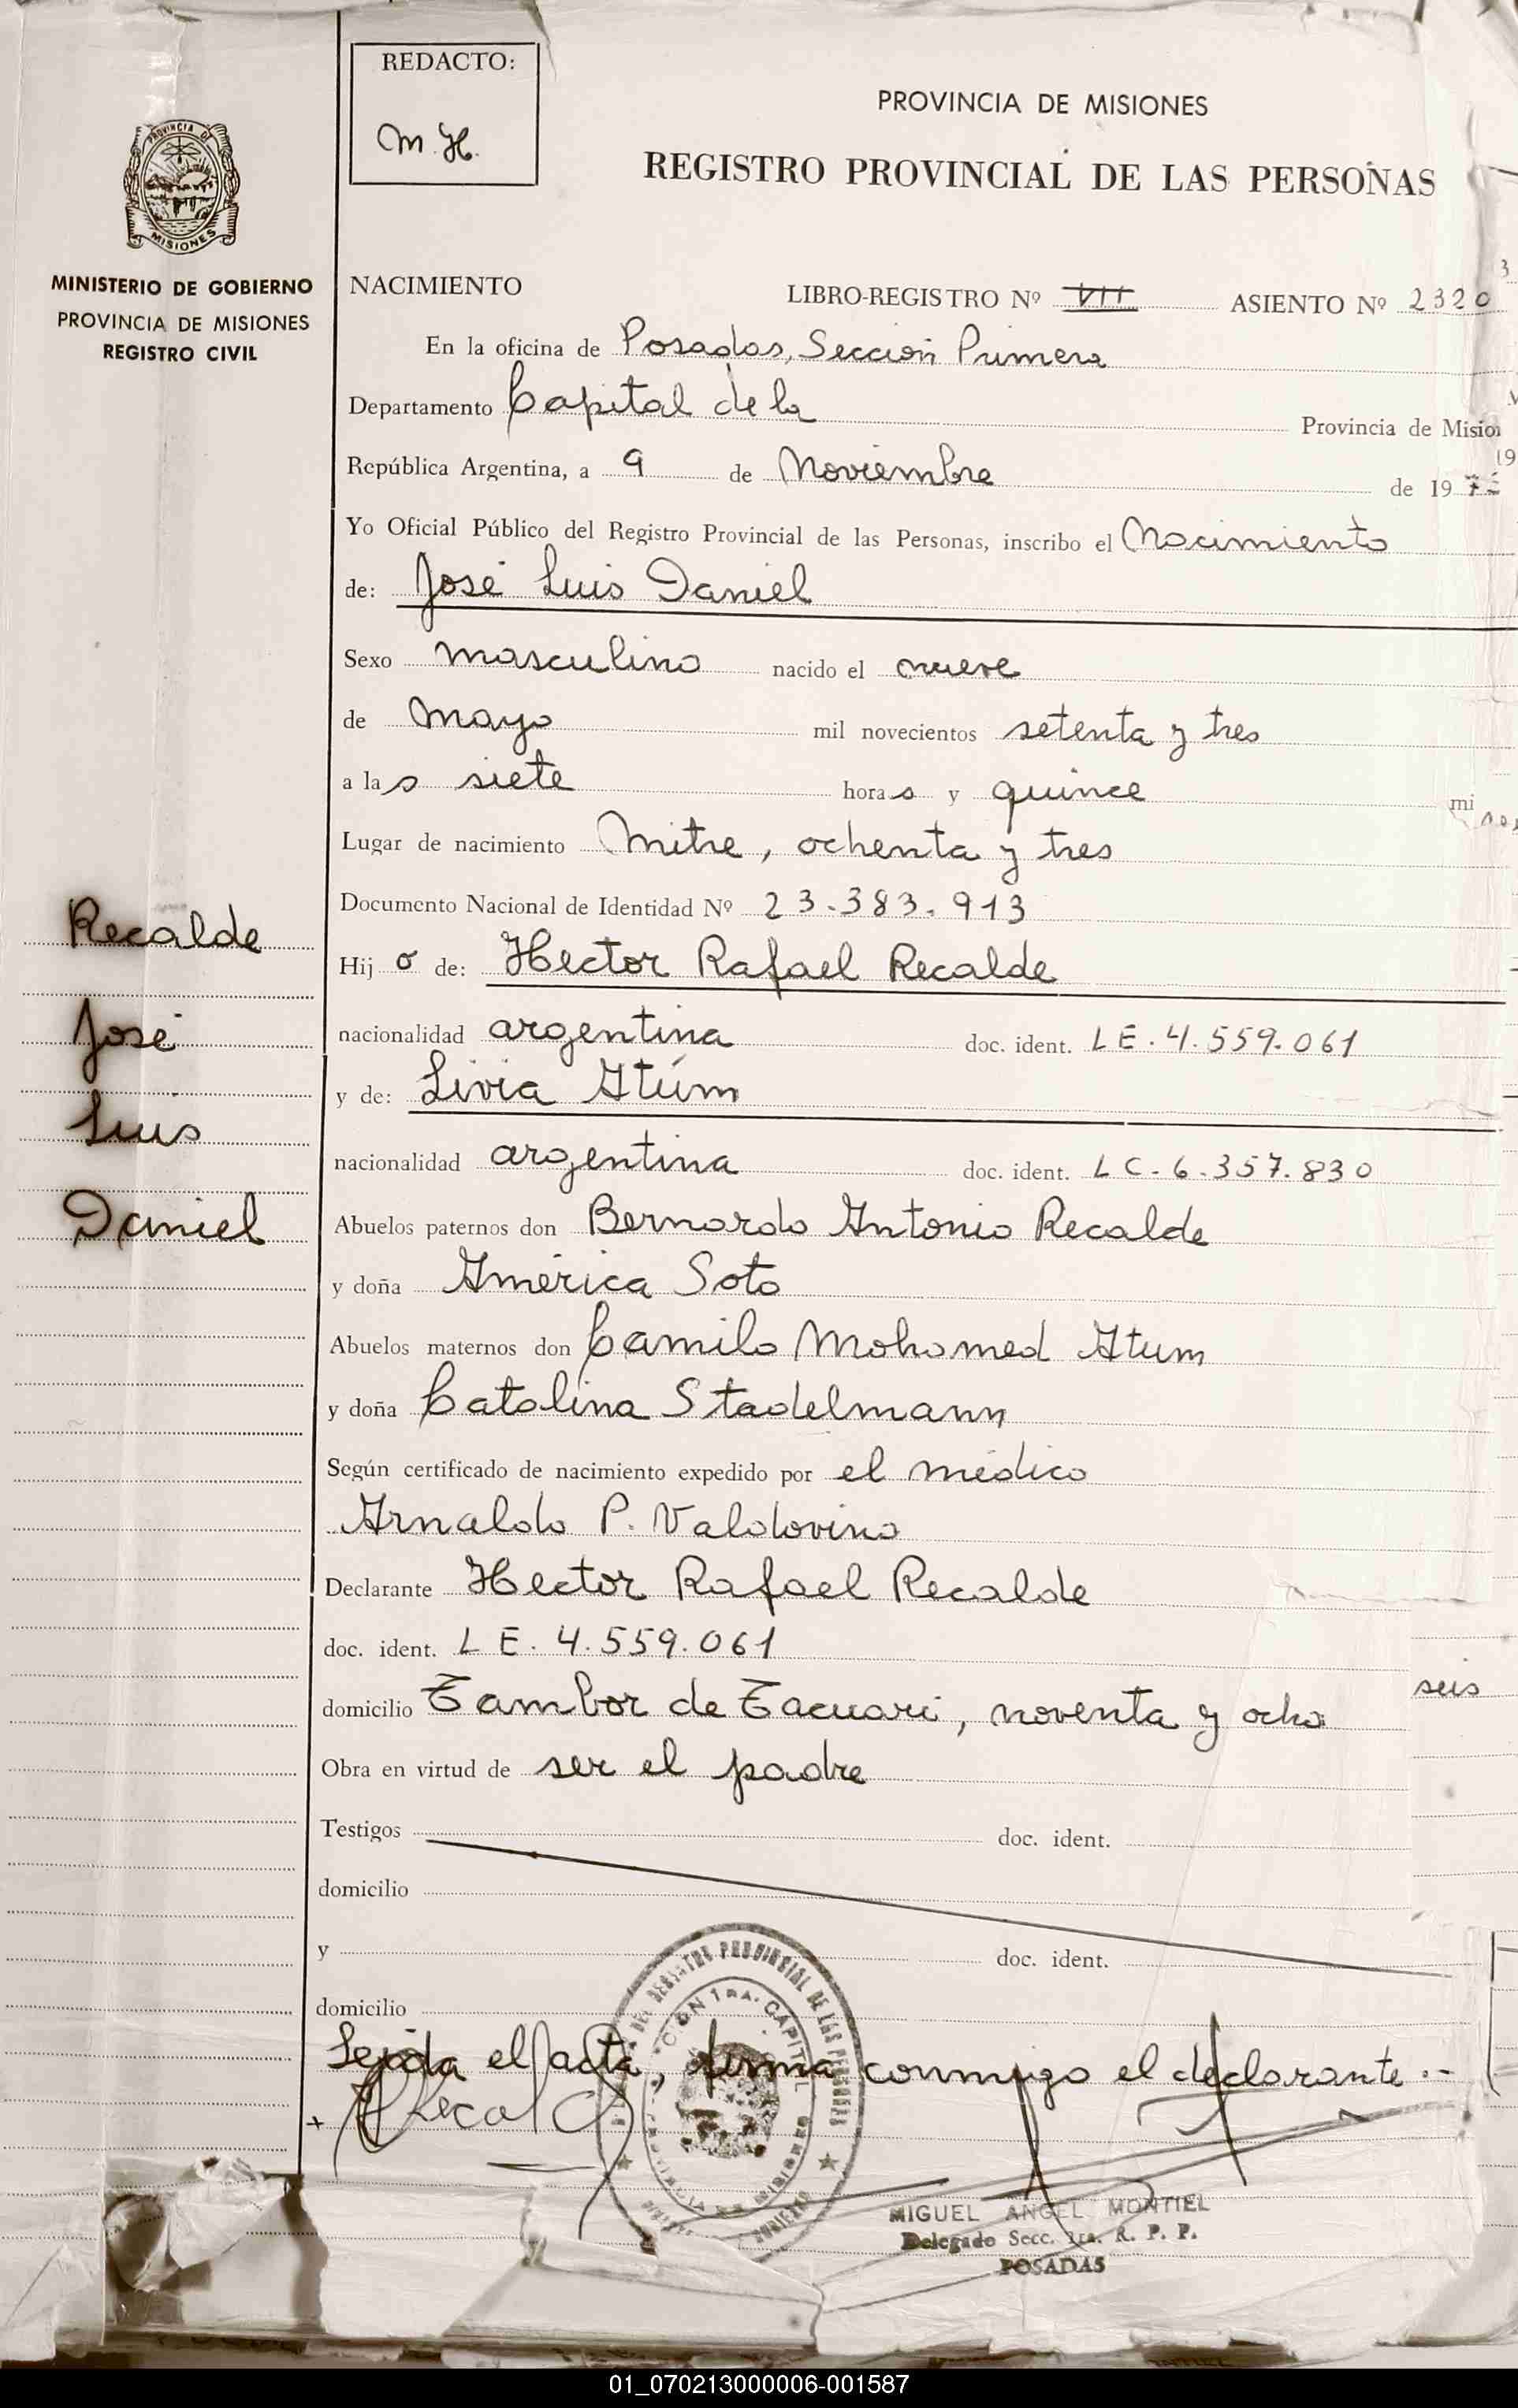 REDACTO:
M. H.
PROVINCIA DE MISIONES
REGISTRO PROVINCIAL DE LAS PERSONAS
PROVINCIA DE
MISIONES
MINISTERIO DE GOBIERNO
PROVINCIA DE MISIONES
REGISTRO CIVIL
NACIMIENTO
LIBRO-REGISTRO Nº VII ASIENTO Nº 2320
En la oficina de Posadas, Sección Primera
Departamento Capital de la Provincia de Misio
República Argentina, a 9 de Noviembre de 197
Yo Oficial Público del Registro Provincial de las Personas, inscribo el Nacimiento
de: José Luis Daniel
Sexo masculino nacido el nueve
de Mayo mil novecientos setenta y tres
a las siete horas y quince mi
Lugar de nacimiento Mitre, ochenta y tres
Documento Nacional de Identidad Nº 23.383.913
Hijo de: Hector Rafael Recalde
nacionalidad argentina doc. ident. LE. 4.559.061
y de: Livia Atúm
nacionalidad argentina doc. ident. LC-6.357.830
Abuelos paternos don Bernardo Antonio Recalde
y doña América Soto
Abuelos maternos don Camilo Mohamed Atum
y doña Catalina Stadelmann
Según certificado de nacimiento expedido por el médico
Arnaldo P. Valdovino
Declarante Hector Rafael Recalde
doc. ident. LE. 4.559.061
domicilio Tambor de Tacuari, noventa y ocho
seis
Obra en virtud de ser el padre
Testigos doc. ident.
domicilio
y doc. ident.
domicilio
Leida el acta, firma conmigo el declarante.-
Recalde
José
Luis
Daniel
MIGUEL ANGEL MONTIEL
Delegado Secc. 1ra. R. P. P.
POSADAS
01_070213000006-001587